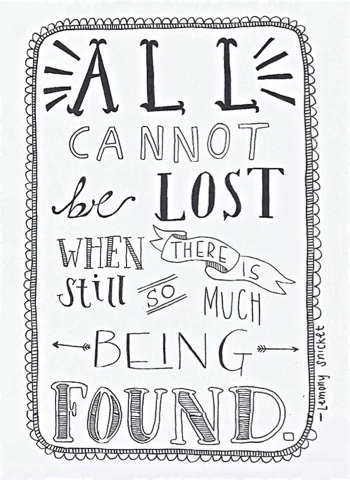 ALL
CANNOT
be LOST
WHEN THERE IS
still so MUCH
BEING
FOUND.
-Lemony Snicket